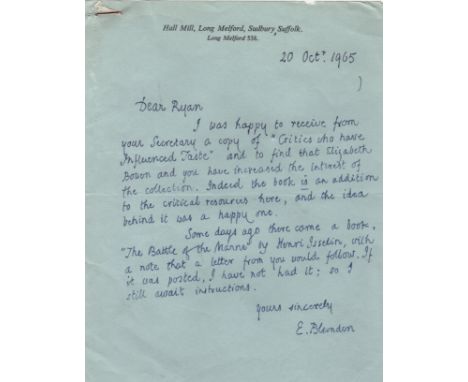 Hall Mill, Long Melford, Sudbury, Suffolk.
Long Melford 538.
20 Octr. 1965
Dear Ryan
I was happy to receive from
your Secretary a copy of "Critics who have
Influenced Taste" and to find that Elizabeth
Bowen and you have increased the interest of
the collection. Indeed the book is an addition
to the critical resources here, and the idea
behind it was a happy one.
Some days ago there came a book,
"The Battle of the Marne" by Henri Isselin, with
a note that a letter from you would follow. If
it was posted, I have not had it; so I
still await instructions.
Yours sincerely
E. Blunden